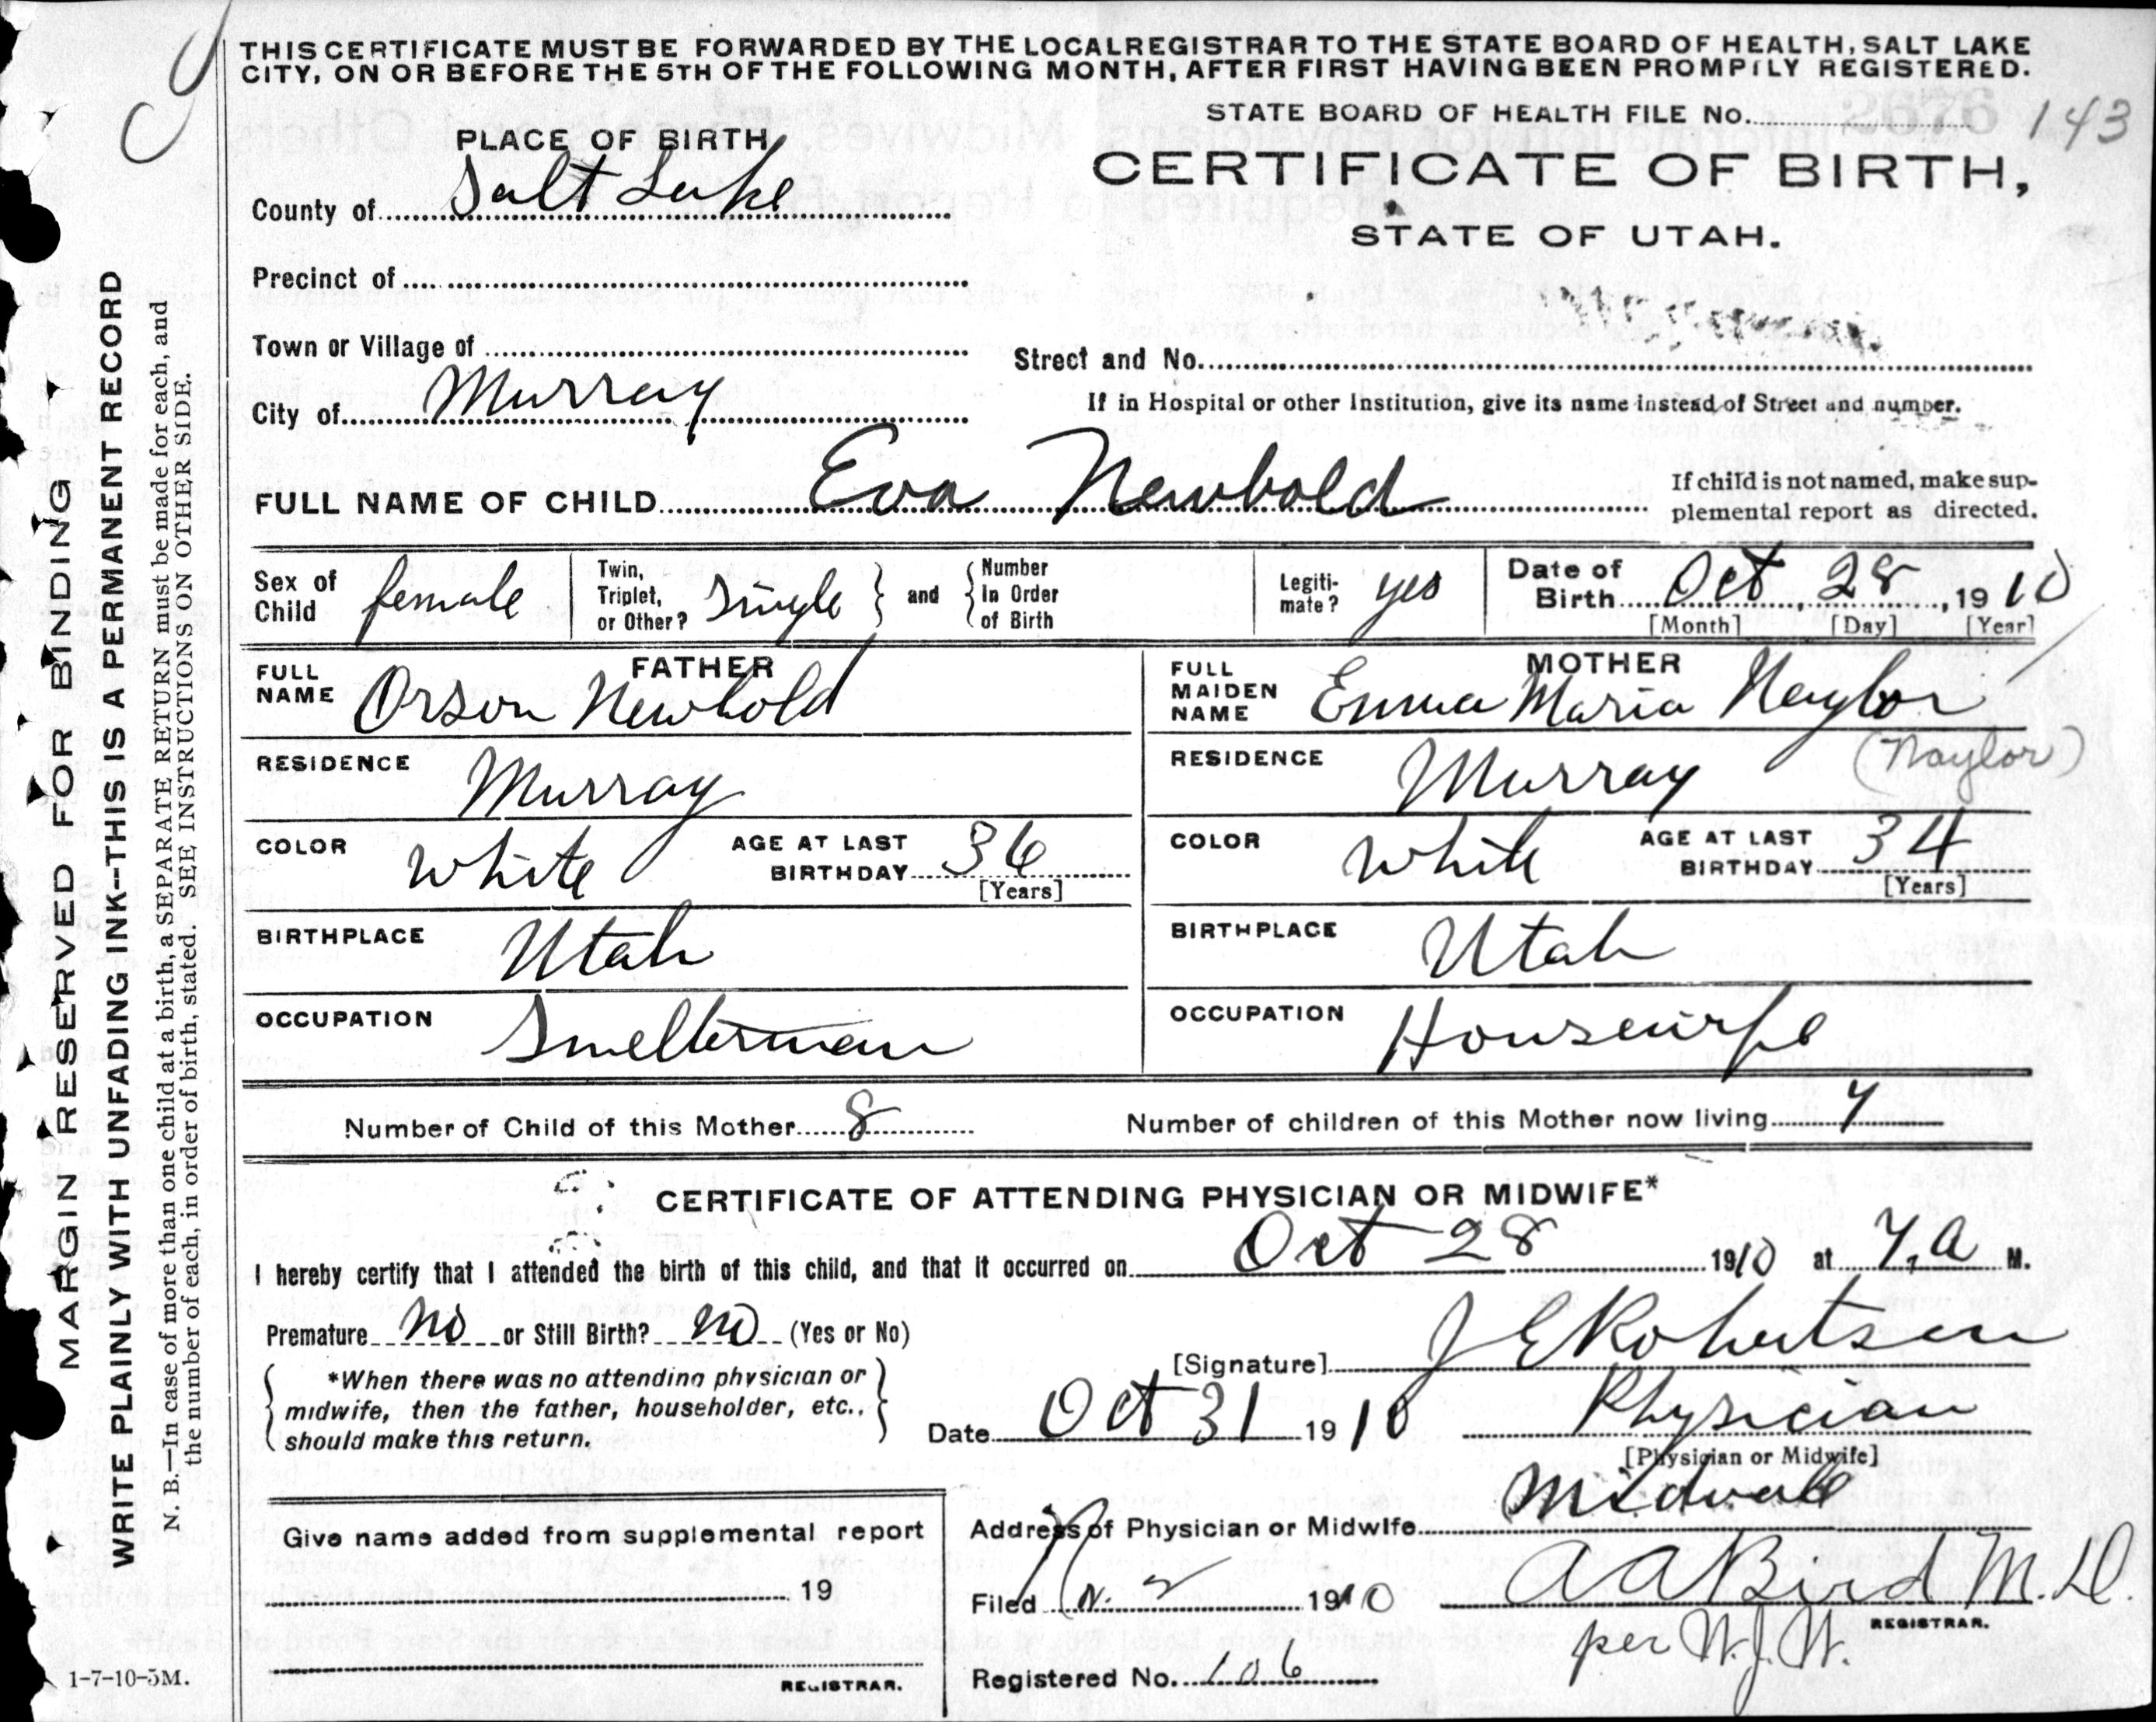 THIS CERTIFICATE MUST BE FORWARDED BY THE LOCAL REGISTRAR TO THE STATE BOARD OF HEALTH, SALT LAKE
CITY, ON OR BEFORE THE 5TH OF THE FOLLOWING MONTH, AFTER FIRST HAVING BEEN PROMPTLY REGISTERED.
STATE BOARD OF HEALTH FILE No. 143
PLACE OF BIRTH
CERTIFICATE OF BIRTH,
STATE OF UTAH.
County of Salt Lake
Precinct of
Town or Village of
Street and No.
City of Murray
If in Hospital or other Institution, give its name instead of Street and number.
FULL NAME OF CHILD Eva Newbold
If child is not named, make sup-
plemental report as directed.
Sex of Child female
Twin, Triplet, or Other? single
and
Number In Order of Birth
Legiti-mate? yes
Date of Birth Oct 28, 1910
[Month] [Day] [Year]
FATHER
FULL NAME Orson Newbold
RESIDENCE Murray
COLOR White
AGE AT LAST BIRTHDAY 36
[Years]
BIRTHPLACE Utah
OCCUPATION Smelterman
MOTHER
FULL MAIDEN NAME Emma Maria Naylor
(Naylor)
RESIDENCE Murray
COLOR White
AGE AT LAST BIRTHDAY 34
[Years]
BIRTHPLACE Utah
OCCUPATION Housewife
Number of Child of this Mother 8
Number of children of this Mother now living 7
CERTIFICATE OF ATTENDING PHYSICIAN OR MIDWIFE*
I hereby certify that I attended the birth of this child, and that it occurred on Oct 28 1910 at 7, a M.
Premature no or Still Birth? no (Yes or No)
[Signature] J E Robertson
*When there was no attending physician or
midwife, then the father, householder, etc.,
should make this return.
Date Oct 31 1910
Physician
[Physician or Midwife]
Address of Physician or Midwife Midvale
Give name added from supplemental report
19
REGISTRAR.
Filed 1910
A A Bird M.D.
REGISTRAR.
per W.J.W.
Registered No. 106
MARGIN RESERVED FOR BINDING
WRITE PLAINLY WITH UNFADING INK--THIS IS A PERMANENT RECORD
N. B.—In case of more than one child at a birth, a SEPARATE RETURN must be made for each, and
the number of each, in order of birth, stated. SEE INSTRUCTIONS ON OTHER SIDE.
1-7-10-5M.